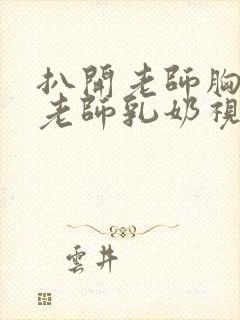 扒開老師胸
老師乳奶視
雲井